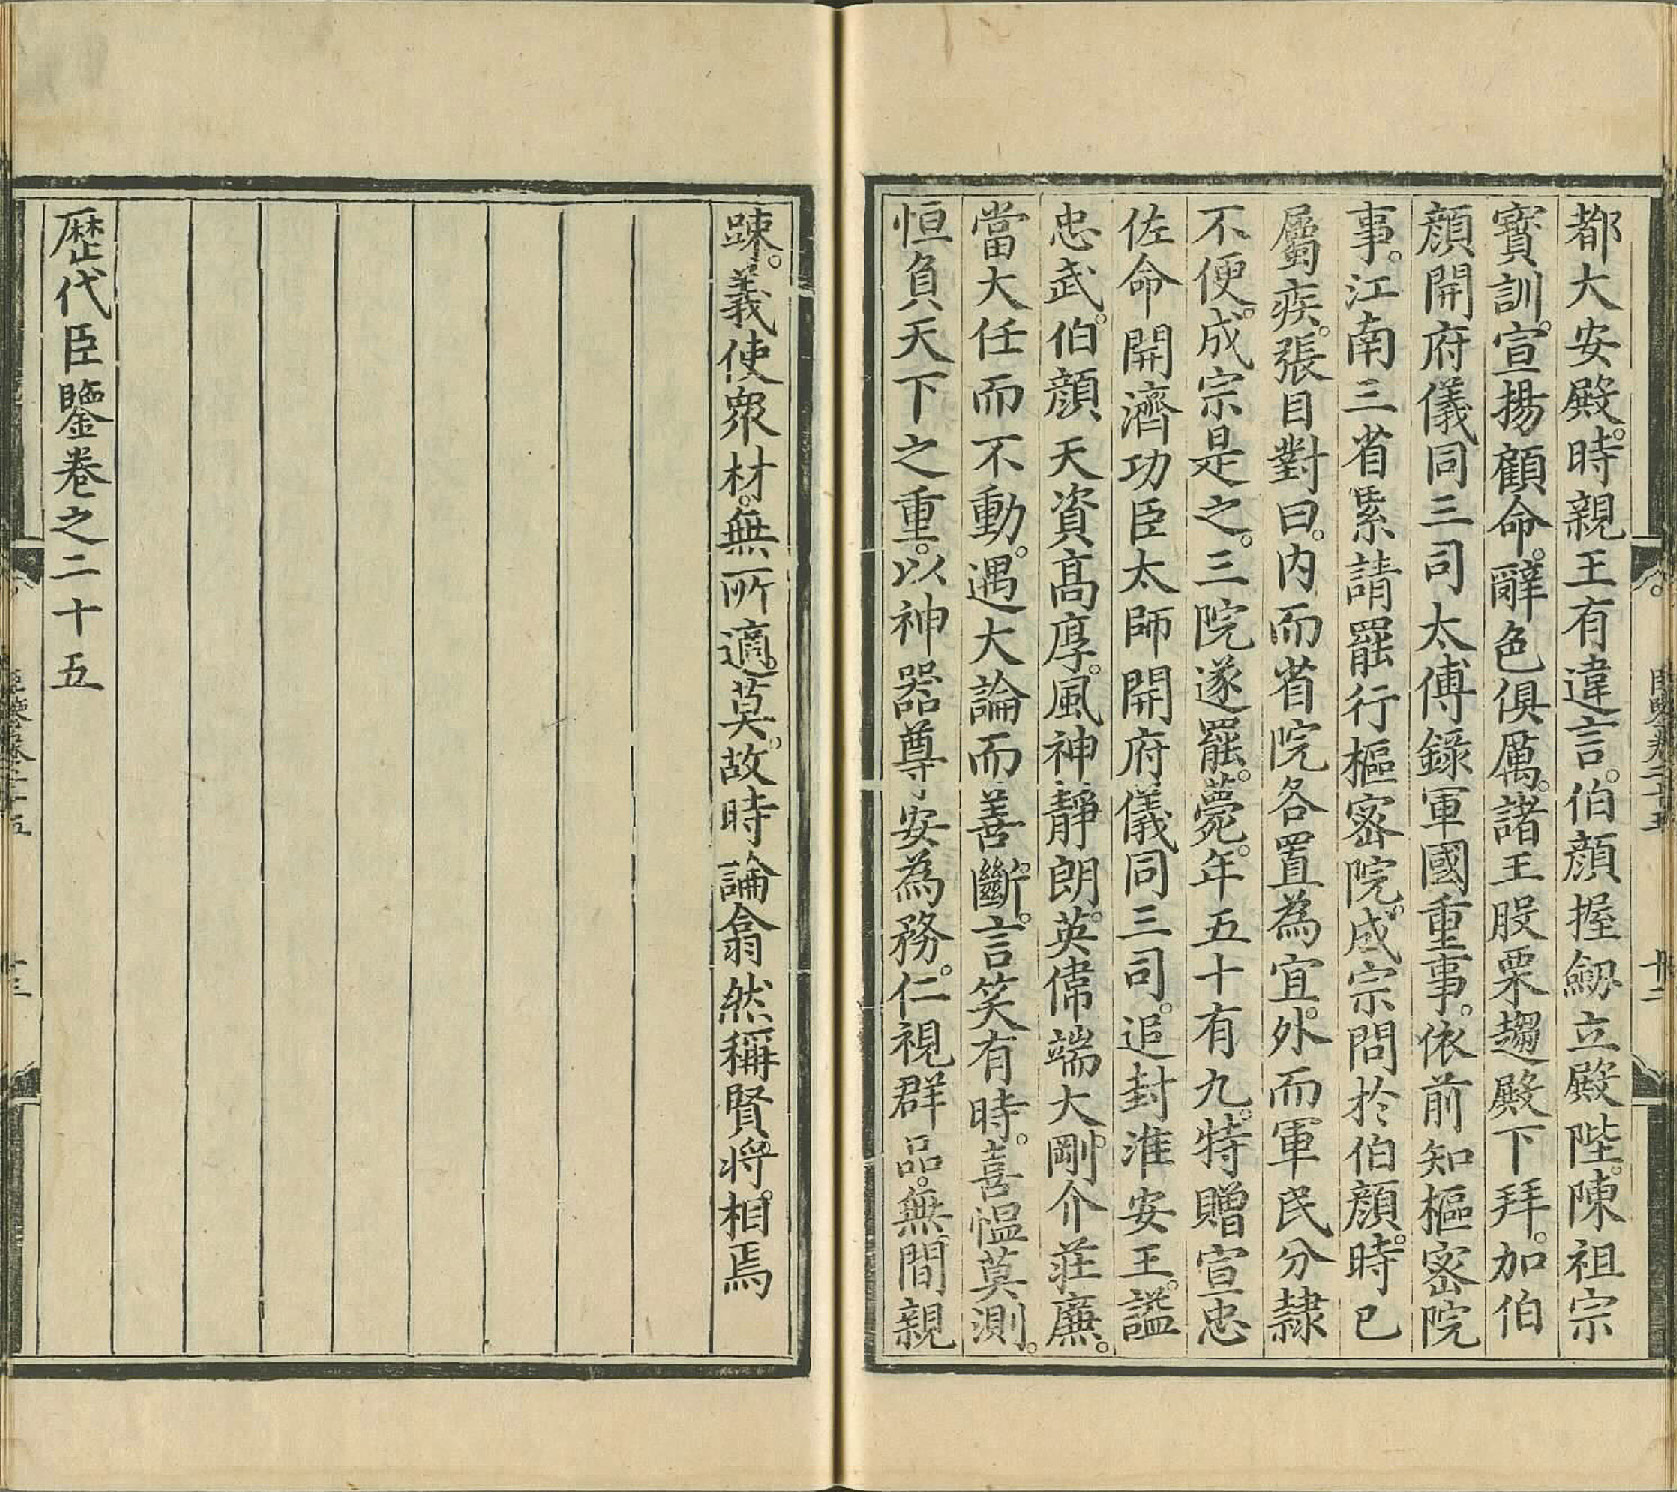 都大安殿。時親王有違言。伯顏握劒立殿陛。陳祖宗
寶訓。宣揚顧命。辭色俱厲。諸王股栗趨殿下拜。加伯
顏開府儀同三司太傅錄軍國重事。依前知樞密院
事。江南三省累請罷行樞密院。成宗問於伯顏。時已
屬疾。張目對曰。内而省院各置為宜。外而軍民分隸
不便。成宗是之。三院遂罷。薨。年五十有九。特贈宣忠
佐命開濟功臣太師開府儀同三司。追封淮安王。謚
忠武。伯顏天資高厚。風神靜朗。英偉端大。剛介莊廉。
當大任而不動。遇大論而善斷。言笑有時。喜慍莫測。
恒負天下之重。以神器尊安為務。仁視群品。無間親
踈。義使衆材。無所適莫。故時論翕然稱賢將相焉
歷代臣鑒卷之二十五